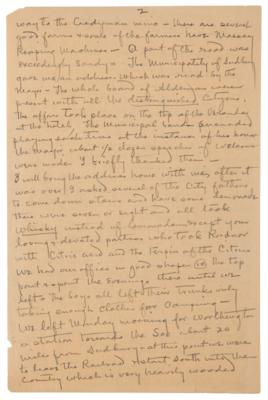 2
way to the Creighton mine - there are several
good farms & some of the farmers have Massey
Reaping Machines - A part of the road was
exceedingly Sandy - The Municipality of Sudbury
gave us an address which was read by the
Mayor - The whole board of Aldermen were
present with all the distinguished Citizens.
The affair took place on the top of the Veranda
at the hotel. The Municipal band serenaded
playing several times at the instance of his honor
the Mayor. about ½ dozen speeches of welcome
was made I briefly thanked them -
I will bring the address home with me, after it
was over I asked several of the City fathers
to come down stairs and have some lemonade
there were seven or eight and all took
whisky instead of lemonade except your
loving & devoted partner who took
with Citric acid and the of the Citrus
We had our office in good shape on the top
port & spent the Evenings there until we
left. The boys all left their trunks only
taking enough clothes for Camping -
We left Monday morning for Worthington
a station towards the Soo about 20
miles from Sudbury - at this point we were
to leave the Railroad & start South into the
Country which is very heavily wooded